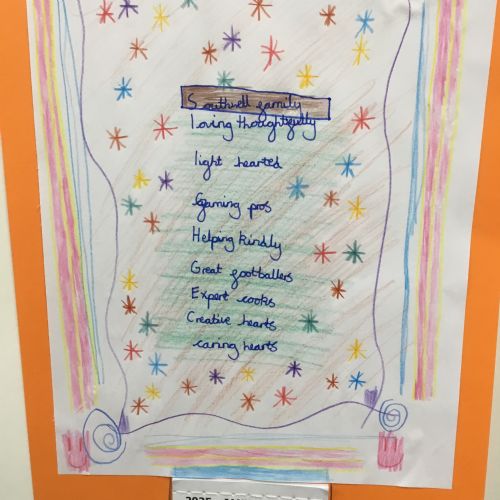 Southwell family
loving thoughtfully
light hearted
Gaming pros
Helping kindly
Great footballers
Expert cooks
Creative hearts
caring hearts